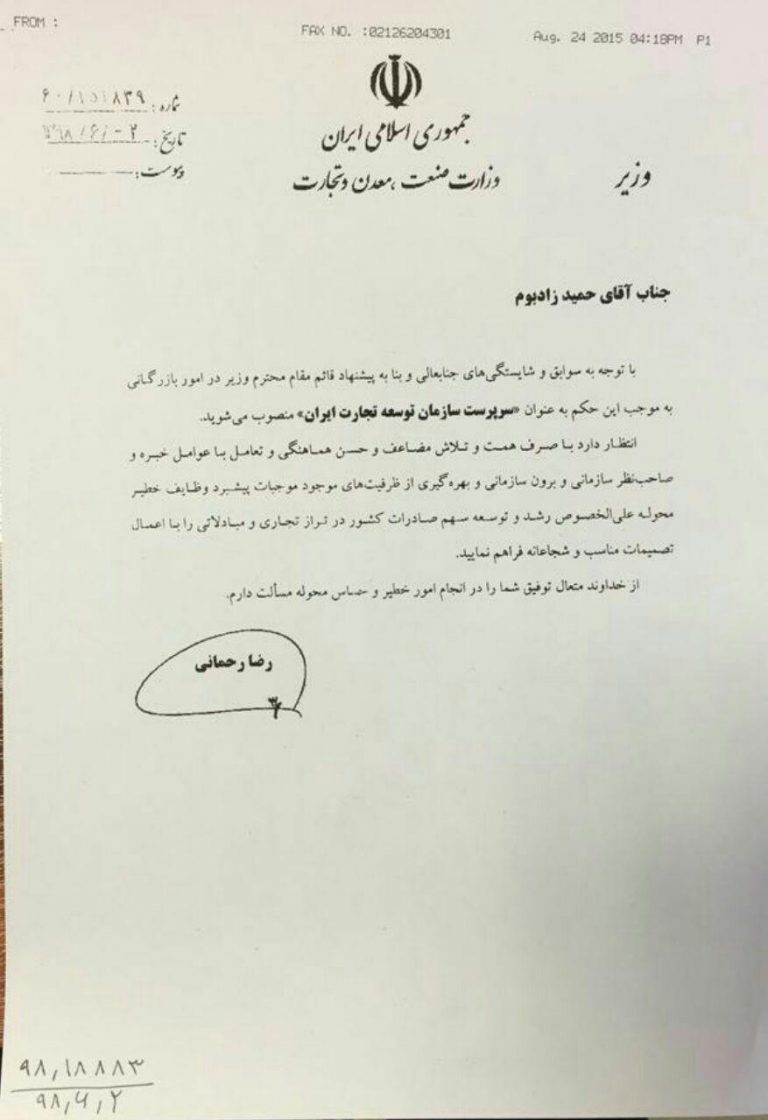 FROM :
FAX NO. :02126204301
Aug. 24 2015 04:18PM P1
شماره: ۶۰/۱۵۱۸۳۹
تاریخ: ۱۳۹۸/۶/۰۲
پیوست:
جمهوری اسلامی ایران
وزارت صنعت، معدن و تجارت
وزیر
جناب آقای حمید زادبوم
با توجه به سوابق و شایستگی‌های جنابعالی و بنا به پیشنهاد قائم مقام محترم وزیر در امور بازرگانی
به موجب این حکم به عنوان «سرپرست سازمان توسعه تجارت ایران» منصوب می‌شوید.
انتظار دارد با صرف همت و تلاش مضاعف و حسن هماهنگی و تعامل با عوامل خبره و
صاحب‌نظر سازمانی و برون سازمانی و بهره‌گیری از ظرفیت‌های موجود موجبات پیشبرد وظایف خطیر
محوله علی‌الخصوص رشد و توسعه سهم صادرات کشور در تراز تجاری و مبادلاتی را با اعمال
تصمیمات مناسب و شجاعانه فراهم نمایید.
از خداوند متعال توفیق شما را در انجام امور خطیر و حساس محوله مسألت دارم.
رضا رحمانی
۹۸,۱۸۸۸۳
۹۸,۶,۲